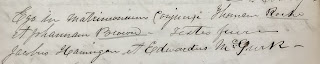 Ego in Matrimonium Conjunxi Thomam Burke
et Johannam Brown — Testes fuere
Jacobus Hanigan et Edwardus McGurk —